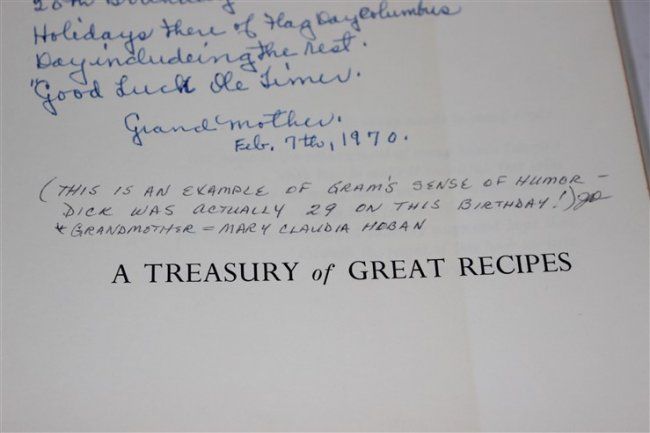 Holidays there of Flag Day Columbus
Day includeing the rest.
"Good Luck Ole Timer.
Grand mother.
Feb. 7th, 1970.
(THIS IS AN EXAMPLE OF GRAM'S SENSE OF HUMOR -
DICK WAS ACTUALLY 29 ON THIS BIRTHDAY!)
* GRANDMOTHER = MARY CLAUDIA HOBAN
A TREASURY of GREAT RECIPES